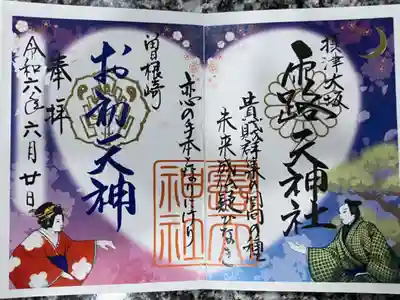 摂津大坂
露天神社
貴賤群集の回向の種
未来成仏疑ひなき
恋の手本となりにけり
曽根崎
お初天神
奉拝
令和六年六月廿日
露天
神社